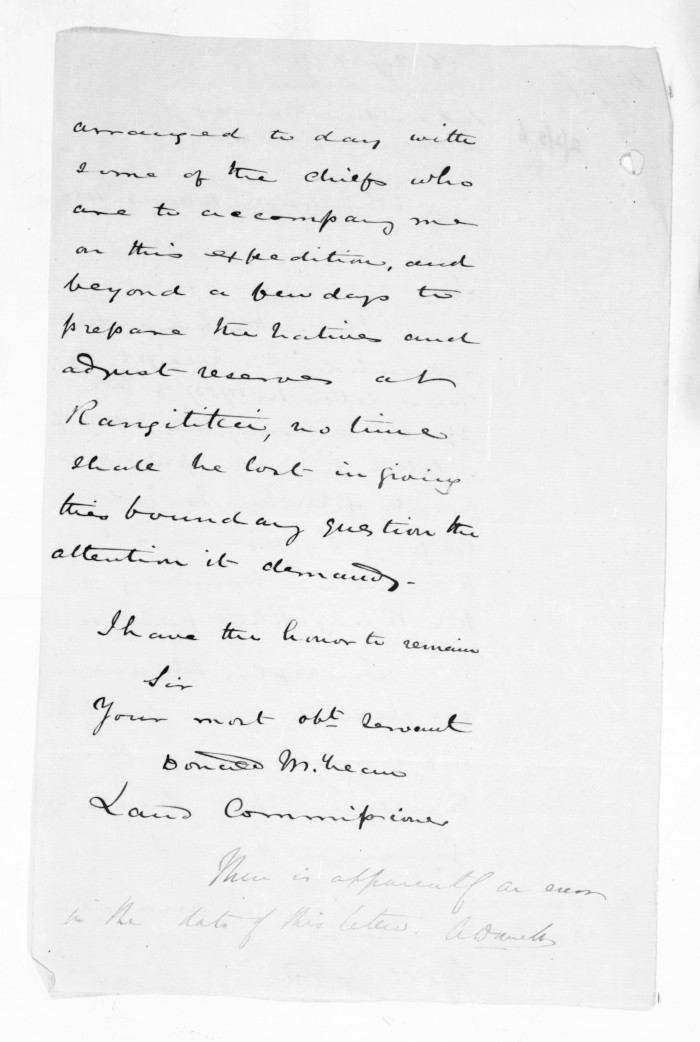 arranged to day with
some of the chiefs who
are to accompany me
on this expedition, and
beyond a few days to
prepare the natives and
adjust reserves at
Rangitikei, no time
shall be lost in giving
this boundary question the
attention it demands.
I have the honor to remain
Sir
Your most obt. servant
Donald McLean
Land Commissioner
There is apparently an error
in the date of this letter.